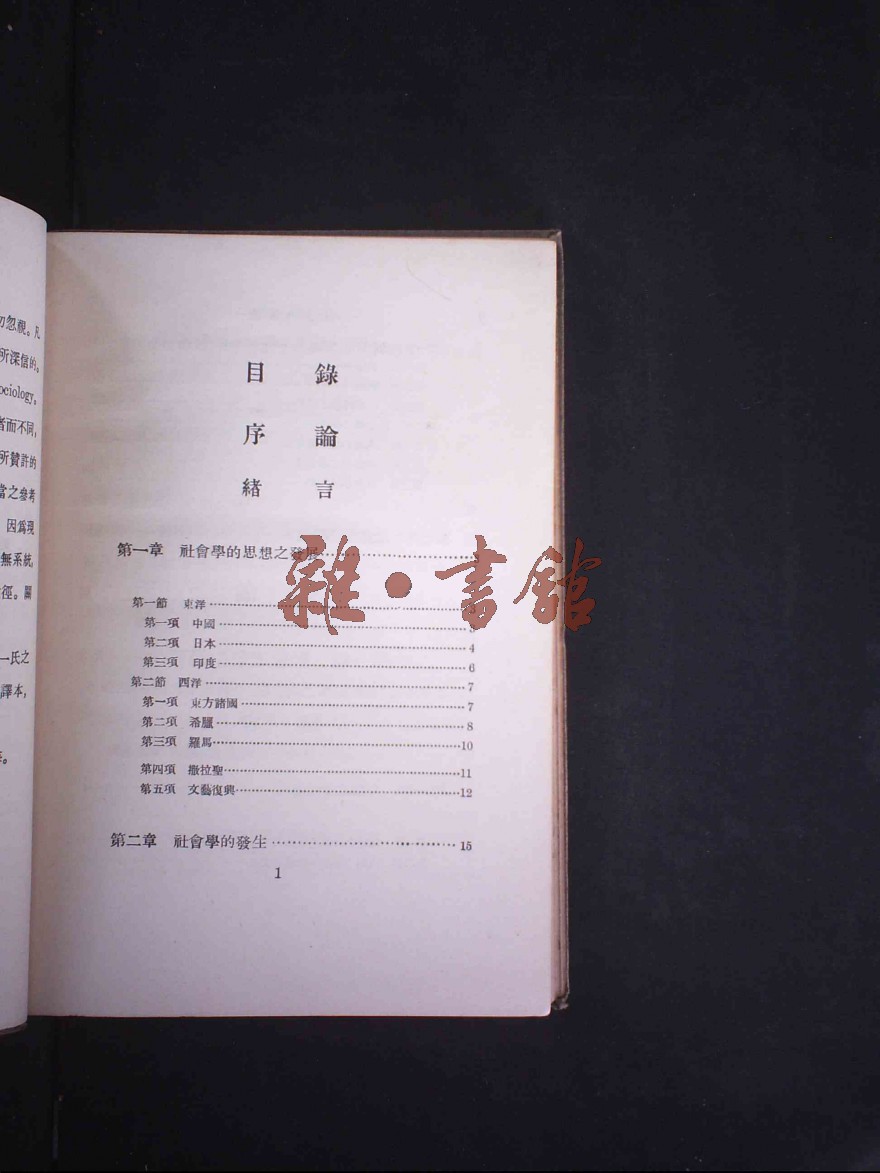 勿忽視。凡
所深信的。
ociology。
者而不同，
所贊許的
當之參考
因爲現
無系統，
徑。關
一氏之
譯本，
目錄
序論
緒言
第一章 社會學的思想之發展
第一節 東洋
第一項 中國 3
第二項 日本 4
第三項 印度 6
第二節 西洋 7
第一項 東方諸國 7
第二項 希臘 8
第三項 羅馬 10
第四項 撒拉聖 11
第五項 文藝復興 12
第二章 社會學的發生 15
1
雜·書館